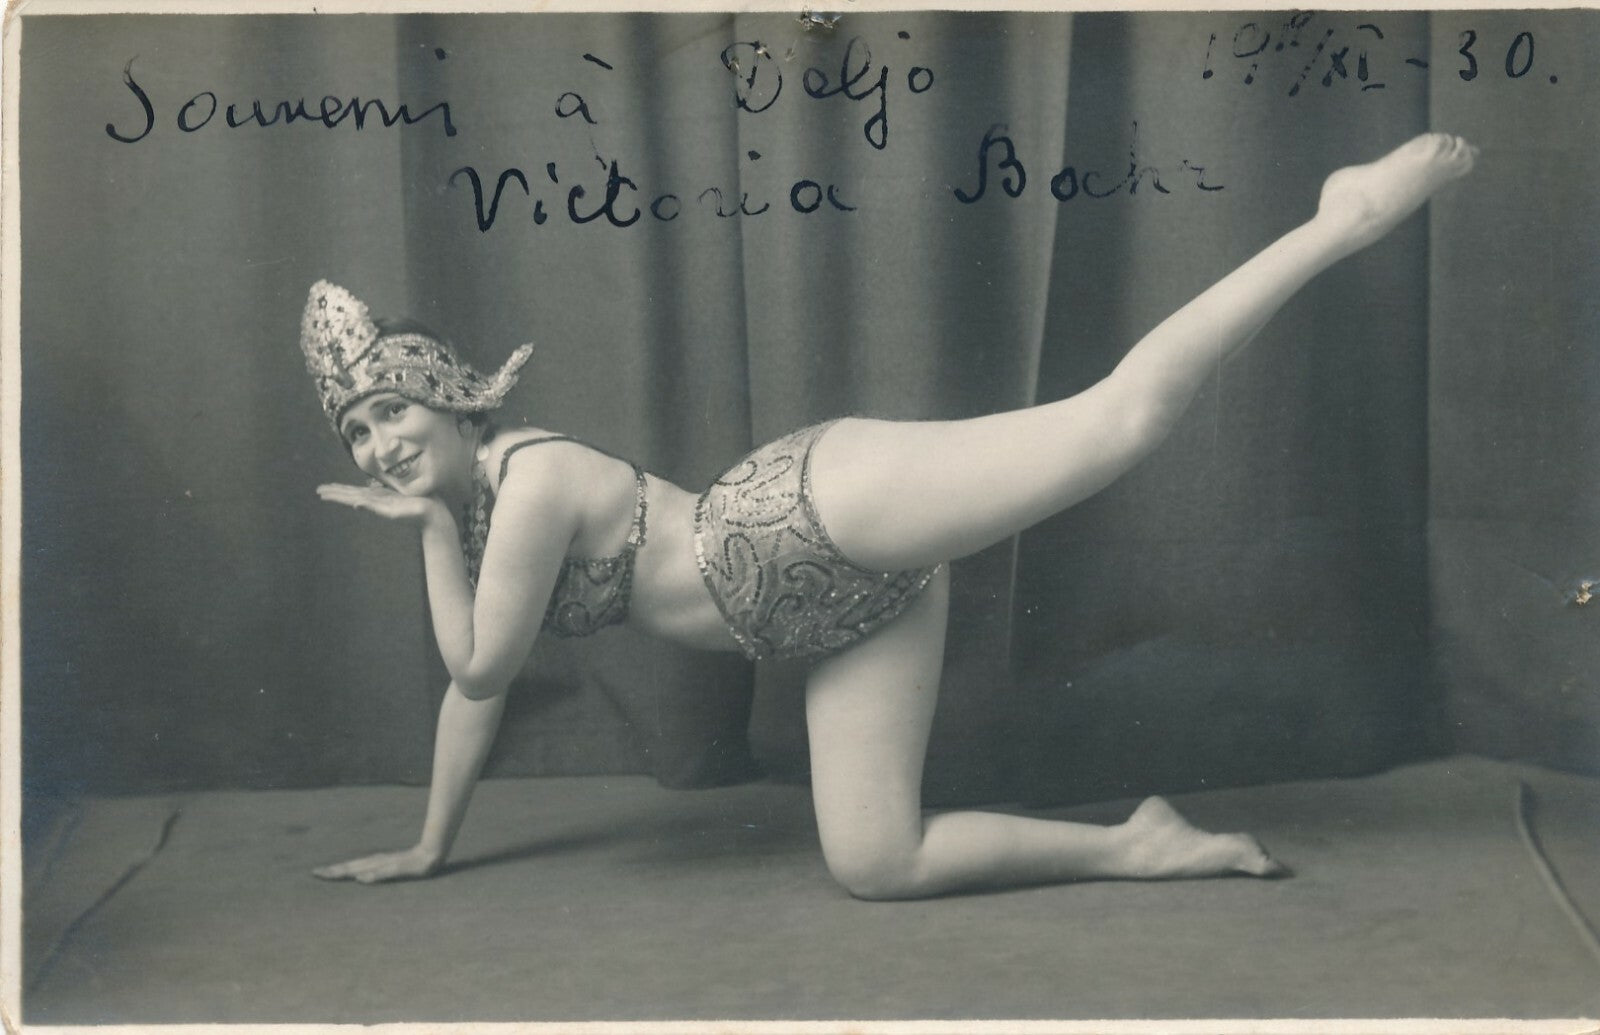 Souvenir à Deljo
19 /XI - 30.
Victoria Bahr